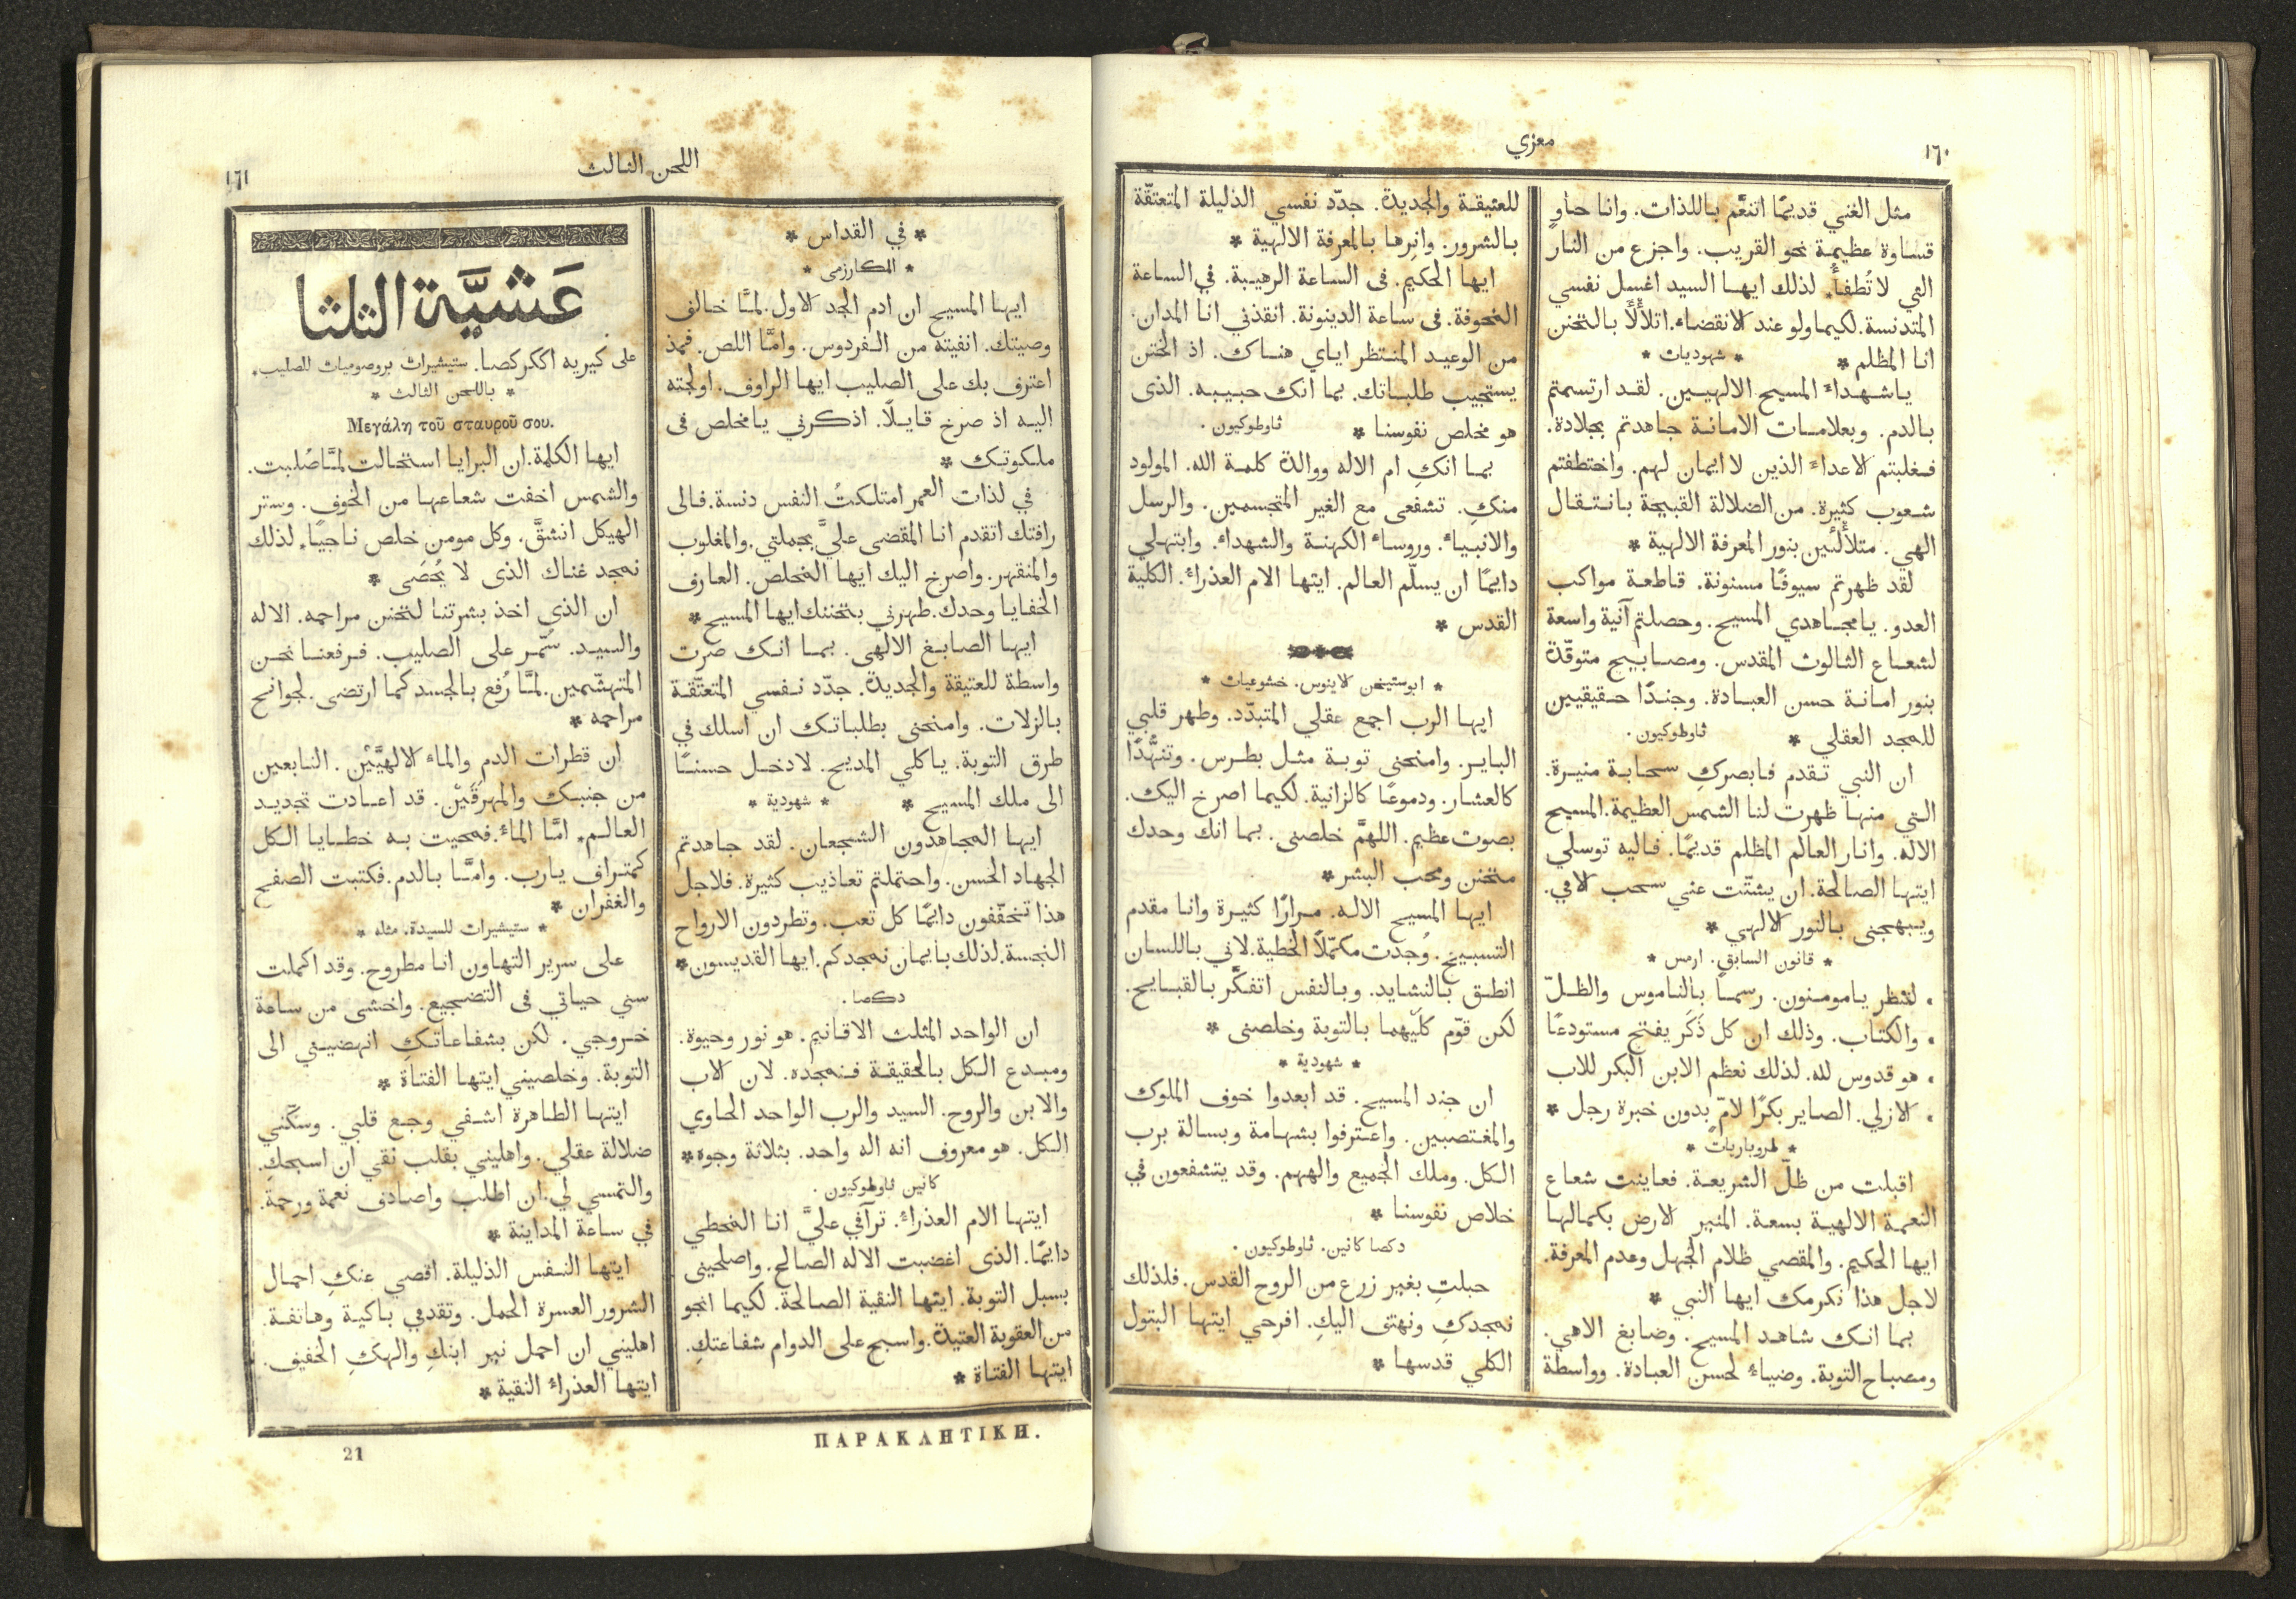 ١٦٠
معزي
مثل الغني قديمًا اتنعَّم باللذات. وانا حاوٍ
قساوة عظيمة نحو القريب. واجزع من النار
التي لا تُطفأُ. لذلك ايها السيد اغسل نفسي
المتدنسة. لكيما ولو عند الانقضاء. اتلأْلَأ بالتحنن
انا المظلم *
* شهوديات *
ياشهداءَ المسيح الالهيين. لقد ارتسمتم
بالدم. وبعلامات الامانة جاهدتم بجلادة.
فغلبتم الاعداءَ الذين لا ايمان لهم. واختطفتم
شعوب كثيرة. من الضلالة القبيحة بانتقال
الهي. متلألئين بنور المعرفة الالهية *
لقد ظهرتم سيوفًا مسنونة. قاطعة مواكب
العدو. يا مجاهدي المسيح. وحصلتم آنية واسعة
لشعاع الثالوث المقدس. ومصابيح متوقّدة
بنور امانة حسن العبادة. وجندًا حقيقيين
للمجد العقلي *
ثاوطوكيون.
ان النبي تقدم فابصركِ سحابة منيرة.
التي منها ظهرت لنا الشمس العظيمة. المسيح
الاله. وانار العالم المظلم قديمًا. فاليه توسلي
ايتها الصالحة. ان يشتّت عني سحب الامي.
ويبهجنى بالنور الالهي *
* قانون السابق. ارمس *
• لننظر يا مومنون. رسمًا بالناموس والظلّ
• والكتاب. وذلك ان كل ذَكَر يفتح مستودعًا
• هو قدوس لله. لذلك نعظم الابن البكر للاب
• الازلي. الصاير بكرًا لامّ بدون خبرة رجل *
* طروباريات *
اقبلت من ظلّ الشريعة. فعاينت شعاع
النعمة الالهية بسعة. المنير الارض بكمالها
ايها الحكيم. والمقصي ظلام الجهل وعدم المعرفة.
لاجل هذا نكرمك ايها النبي *
بما انك شاهد المسيح. وضابغ الاهي.
ومصباح التوبة. وضياءٌ لحسن العبادة. وواسطة
للعتيقة والجديدة. جدّد نفسي الذليلة المتعتّقة
بالشرور. وانِرها بالمعرفة الالهية *
ايها الحكيم. فى الساعة الرهيبة. في الساعة
المخوفة. فى ساعة الدينونة. انقذني انا المدان.
من الوعيد المنتظر اياي هناك. اذ المتحنن
يستجيب طلباتك. بما انك حبيبه. الذى
هو مخلص نفوسنا *
ثاوطوكيون.
بما انكِ ام الاله ووالدة كلمة الله. المولود
منكِ. تشفعى مع الغير المتجسمين. والرسل
والانبياءَ. وروساءَ الكهنة والشهداءَ. وابتهلي
دايمًا ان يسلّم العالم. ايتها الام العذراءُ. الكلية
القدس *
* ابوستيخن لاينوس. خشوعيات *
ايها الرب اجمع عقلي المتبدّد. وطهر قلبي
الباير. وامنحني توبة مثل بطرس. وتنهُّدًا
كالعشار. ودموعًا كالزانية. لكيما اصرخ اليك.
بصوت عظيم. اللهمَّ خلصنى. بما انك وحدك
متحنن ومحب البشر *
ايها المسيح الاله. مرارًا كثيرة وانا مقدم
التسبيح. وُجدت مكمّلًا الخطية. لاني باللسان
انطق بالنشايد. وبالنفس اتفكّر بالقبايح.
لكن قوّم كلّيهما بالتوبة وخلصنى *
* شهودية *
ان جند المسيح. قد ابعدوا خوف الملوك
والمغتصبين. واعترفوا بشهامة وبسالة برب
الكل. وملك الجميع والههم. وقد يتشفعون في
خلاص نفوسنا *
دكصا كانين. ثاوطوكيون.
حبلتِ بغير زرع من الروح القدس. فلذلك
نمجدكِ ونهتف اليكِ. افرحي ايتها البتول
الكلي قدسها *
اللحن الثالث
١٦١
* في القداس *
* المكارزمى *
ايها المسيح ان ادم الجد الاول. لمَّا خالف
وصيتك. انفيته من الفردوس. وامَّا اللص. فمذ
اعترف بك على الصليب ايها الراوف. اولجته
اليه اذ صرخ قايلًا. اذكرني يا مخلص فى
ملكوتك *
في لذات العمر امتلكتُ النفس دنسة. فالى
رافتك اتقدم انا المقضى عليَّ بجملتي. والمغلوب
والمنقهر. واصرخ اليك ايها المخلص. العارف
الخفايا وحدك. طهرني بتحننك ايها المسيح *
ايها الصابغ الالهى. بما انك صرت
واسطة للعتيقة والجديدة. جدّد نفسي المتعتّقة
بالزلات. وامنحنى بطلباتك ان اسلك في
طرق التوبة. ياكلي المديح. لادخل حسنًا
الى ملك المسيح *
* شهودية *
ايها المجاهدون الشجعان. لقد جاهدتم
الجهاد الحسن. واحتملتم تعاذيب كثيرة. فلاجل
هذا تخفّفون دايمًا كل تعب. وتطردون الارواح
النجسة. لذلك بايمان نمجدكم. ايها القديسون *
دكصا.
ان الواحد المثلث الاقانيم. هو نور وحيوة.
ومبدع الكل بالحقيقة فنمجده. لان الاب
والابن والروح. السيد والرب الواحد الحاوي
الكل. هو معروف انه اله واحد. بثلاثة وجوه *
كانين ثاوطوكيون.
ايتها الام العذراءُ. ترآفي عليَّ انا المخطي
دايمًا. الذى اغضبت الاله الصالح. واصلحينى
بسبل التوبة. ايتها النقية الصالحة. لكيما انجو
من العقوبة العتيدة. واسبح على الدوام شفاعتكِ.
ايتها الفتاة *
عَشيَّة الثلثا
على كيريه اككركصا. ستيشيرات بروصوميات للصليب.
* باللحن الثالث *
Μεγάλη τοῦ σταυροῦ σου.
ايها الكلمة. ان البرايا استحالت لمَّا صُلبت.
والشمس اخفت شعاعها من الخوف. وستر
الهيكل انشقَّ. وكل مومن خلص ناجيًا. لذلك
نمجد غناك الذى لا يُحصَى *
ان الذي اخذ بشرتنا لتحنن مراحمه. الاله
والسيد. سُمّر على الصليب. فرفعنا نحن
المتهشّمين. لمَّا رُفع بالجسد كما ارتضى. لجوانح
مراحمه *
ان قطرات الدم والماءَ الالهيَّيْن. النابعين
من جنبك والمهرقَيْن. قد اعادت تجديد
العالم. امَّا الماءُ. فمحيت به خطايا الكل
كمتراف يارب. وامَّا بالدم. فكتبت الصفح
والغفران *
* ستيشيرات للسيدة. مثله *
على سرير التهاون انا مطروح. وقد اكملت
سني حياتي فى التضجيع. واخشى من ساعة
خروجي. لكن بشفاعاتكِ انهضيني الى
التوبة. وخلصيني ايتها الفتاة *
ايتها الطاهرة اشفي وجع قلبي. وسكّني
ضلالة عقلي. واهليني بقلب نقي ان اسبحكِ.
والتمسي لي. ان اطلب واصادف نعمة ورحمة.
في ساعة المداينة *
ايتها النفس الذليلة. اقصي عنكِ احمال
الشرور العسرة الحمل. وتقدمي باكية وهاتفة.
اهليني ان احمل نير ابنكِ والهكِ الخفيف.
ايتها العذراءُ النقية *
ΠΑΡΑΚΛΗΤΙΚΗ.
21